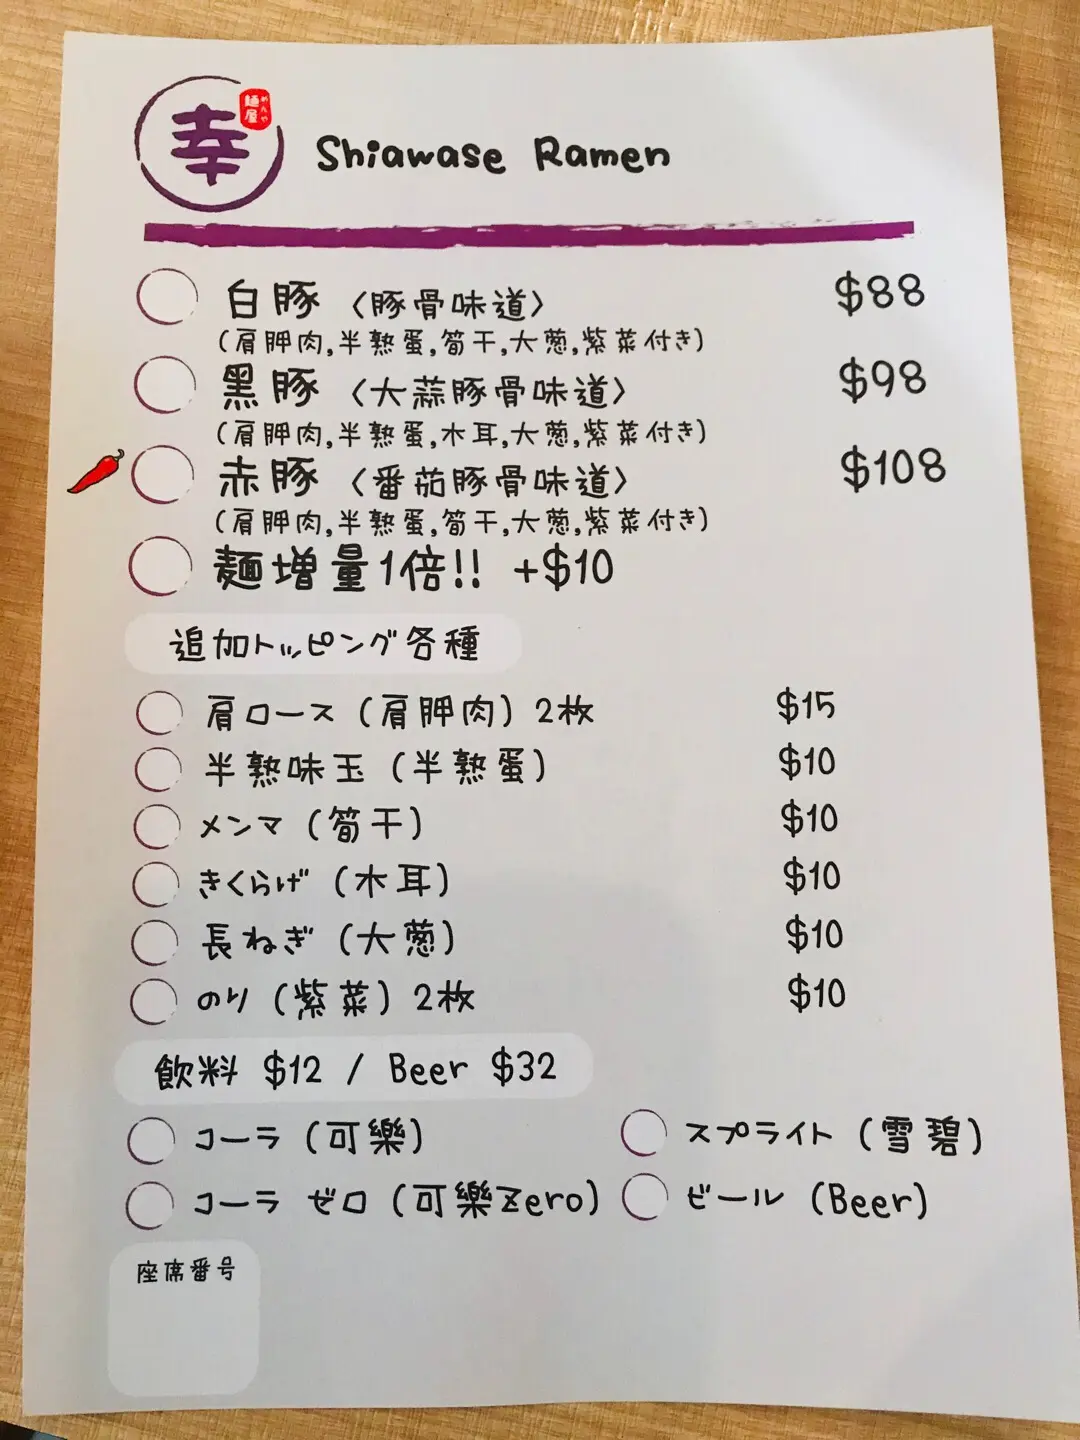 幸
麺屋
めんや
Shiawase Ramen
白豚〈豚骨味道〉 $88
(肩胛肉,半熟蛋,筍干,大葱,紫菜付き)
黑豚〈大蒜豚骨味道〉 $98
(肩胛肉,半熟蛋,木耳,大葱,紫菜付き)
赤豚〈番茄豚骨味道〉 $108
(肩胛肉,半熟蛋,筍干,大葱,紫菜付き)
麺増量1倍!! +$10
追加トッピング各種
肩ロース(肩胛肉)2枚 $15
半熟味玉(半熟蛋) $10
メンマ(筍干) $10
きくらげ(木耳) $10
長ねぎ(大葱) $10
のり(紫菜)2枚 $10
飲料 $12 / Beer $32
コーラ(可樂) スプライト(雪碧)
コーラ ゼロ(可樂Zero) ビール(Beer)
座席番号